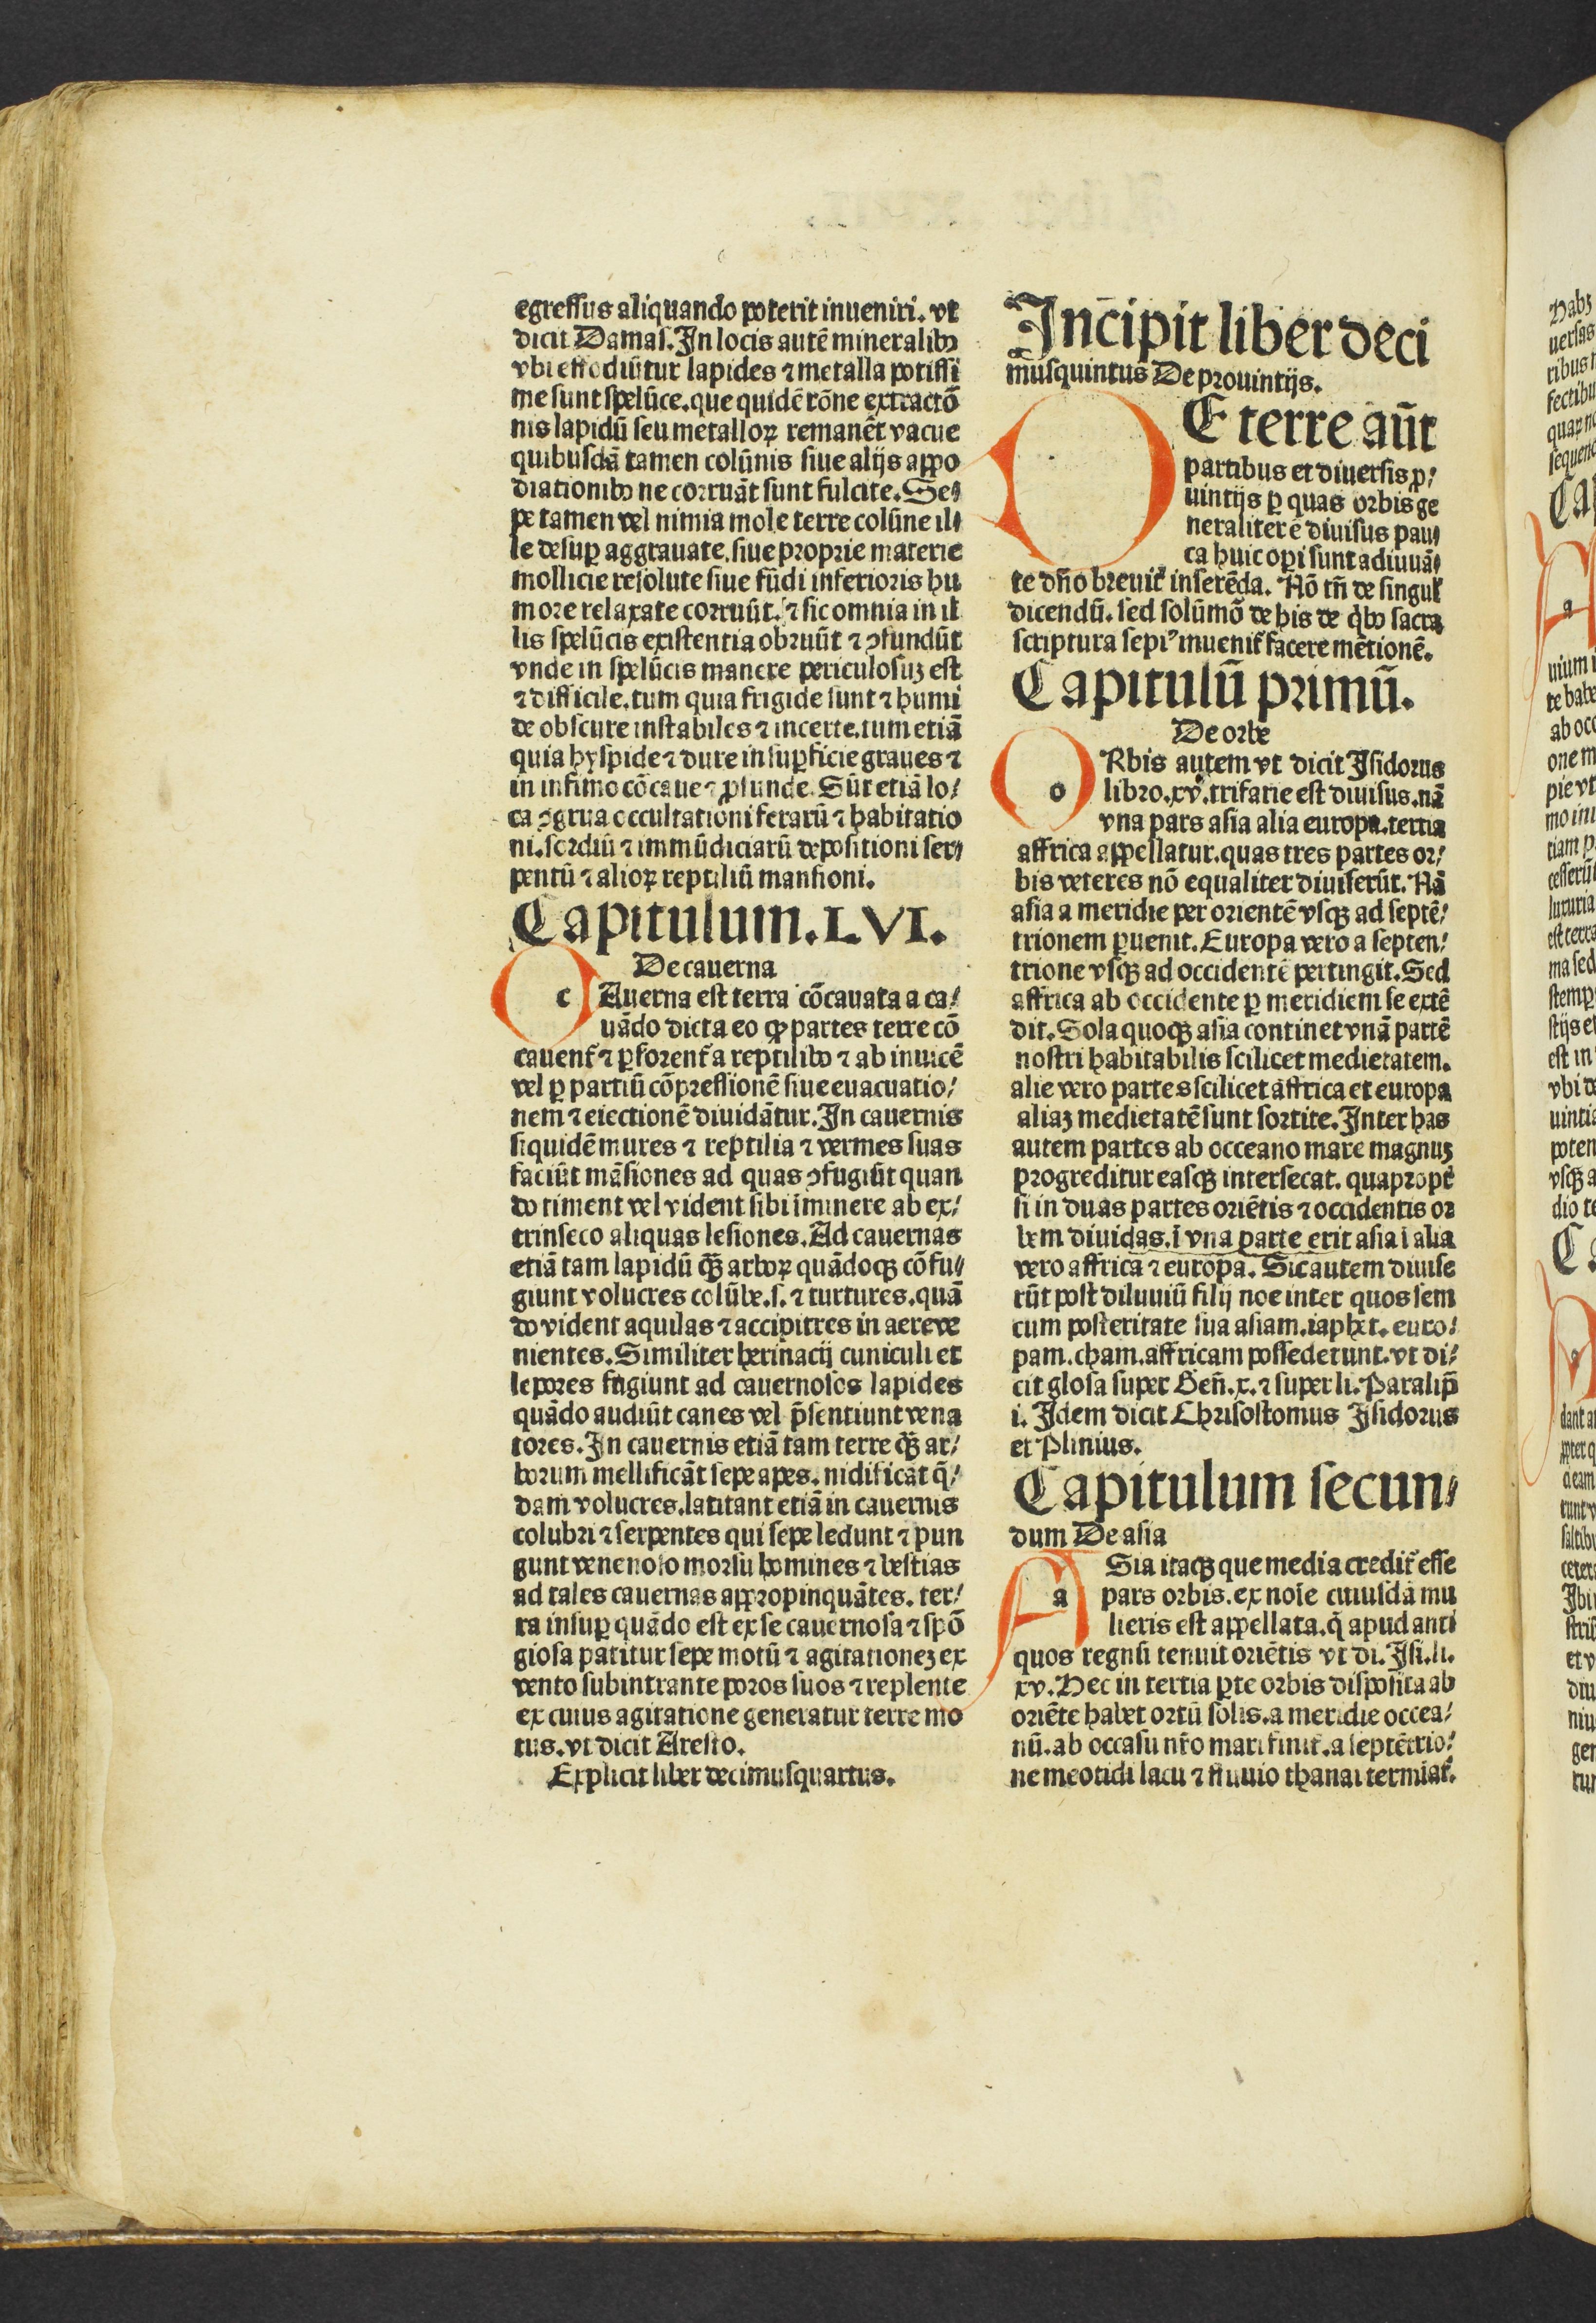 egressus aliquando poterit inueniri. vt
dicit Damas. In locis autē mineralibꝫ
vbi effodiūtur lapides ⁊ metalla potissi
me sunt spelūce. que quidē rōne extractō
nis lapidū seu metalloꝝ remanēt vacue
quibusdā tamen colūnis siue alijs appo
diationibꝫ ne corruāt sunt fulcite. Se⸗
pe tamen vel nimia mole terre colūne il⸗
le desuꝑ aggrauate. siue proprie materie
mollicie resolute siue fūdi inferioris hu
more relaxate corruūt. ⁊ sic omnia in il
lis spelūcis existentia obruūt ⁊ ↄfundūt
vnde in spelūcis manere periculosuꝫ est
⁊ difficile. tum quia frigide sunt ⁊ humi
de obscure instabiles ⁊ incerte. tum etiā
quia hyspide ⁊ dure in suꝑficie graues ⁊
in infimo cōcaue ⁊ ꝓfunde. Sūt etiā lo/
ca ↄgrua occultationi ferarū ⁊ habitatio
ni. sordiū ⁊ immūdiciarū depositioni ser⸗
pentū ⁊ alioꝝ reptiliū mansioni.
Capitulum. LVI.
De cauerna
c Auerna est terra cōcauata a ca/
uādo dicta eo ꝙ partes terre cō
cauent᷑ ⁊ ꝑforent᷑ a reptilibꝫ ⁊ ab inuicē
vel ꝑ partiū cōpressionē siue euacuatio/
nem ⁊ eiectionē diuidātur. In cauernis
siquidē mures ⁊ reptilia ⁊ vermes suas
faciūt māsiones ad quas ↄfugiūt quan
do timent vel vident sibi īminere ab ex/
trinseco aliquas lesiones. Ad cauernas
etiā tam lapidū qꝫ̄ arboꝝ quādoqꝫ cōfu⸗
giunt volucres colūbe. s. ⁊ turtures. quā
do vident aquilas ⁊ accipitres in aere ve
nientes. Similiter herinacij cuniculi et
lepores fugiunt ad cauernosos lapides
quādo audiūt canes vel p̄sentiunt vena
tores. In cauernis etiā tam terre qꝫ̄ ar/
borum mellificāt sepe apes. nidificāt q̄/
dam volucres. latitant etiā in cauernis
colubri ⁊ serpentes qui sepe ledunt ⁊ pun
gunt venenoso morsu homines ⁊ bestias
ad tales cauernas appropinquātes. ter/
ra insuꝑ quādo est ex se cauernosa ⁊ spō
giosa patitur sepe motū ⁊ agitationeꝫ ex
vento subintrante poros suos ⁊ replente
ex cuius agitatione generatur terre mo
tus. vt dicit Aresto.
Explicit liber decimusquartus.
Incipit liber deci
musquintus De prouintijs.
E terre aūt
partibus et diuersis ꝓ/
uintijs ꝑ quas orbis ge
neraliter ē diuisus pau⸗
ca huic oꝑi sunt adiuuā⸗
te dn̄o breuit᷑ inserēda. Nō tn̄ de singul᷑
dicendū. sed solūmō de his de q̇bꝫ sacra
scriptura sepiꝰ inuenit᷑ facere mētionē.
Capitulū primū.
De orbe
o Rbis autem vt dicit Isidorus
libro. xv. trifarie est diuisus. nā
vna pars asia alia europa. tertia
affrica appellatur. quas tres partes or/
bis veteres nō equaliter diuiserūt. Nā
asia a meridie per orientē vsqꝫ ad septē/
trionem ꝑuenit. Europa vero a septen/
trione vsqꝫ ad occidentē pertingit. Sed
affrica ab occidente ꝑ meridiem se extē
dit. Sola quoqꝫ asia continet vnā partē
nostri habitabilis scilicet medietatem.
alie vero partes scilicet affrica et europa
aliaꝫ medietatē sunt sortite. Inter has
autem partes ab occeano mare magnuꝫ
progreditur easqꝫ intersecat. quapropt᷑
si in duas partes oriētis ⁊ occidentis or
bem diuidas. ī vna parte erit asia ī alia
vero affrica ⁊ europa. Sic autem diuise
rūt post diluuiū filij noe inter quos sem
cum posteritate sua asiam. iaphet. euro/
pam. cham. affricam possederunt. vt di/
cit glosa super Gen̄. x. ⁊ super li. Paralip̄
i. Idem dicit Chrisostomus Isidorus
et Plinius.
Capitulum secun⸗
dum De asia
a Sia itaqꝫ que media credit᷑ esse
pars orbis. ex noīe cuiusdā mu
lieris est appellata. q̄ apud anti
quos regnū tenuit oriētis vt di. Isi. li.
xv. Hec in tertia ꝑte orbis disposita ab
oriēte habet ortū solis. a meridie occea/
nū. ab occasu nr̄o mari finit᷑. a septētrio/
ne meotidi lacu ⁊ fluuio thanai termīat᷑.